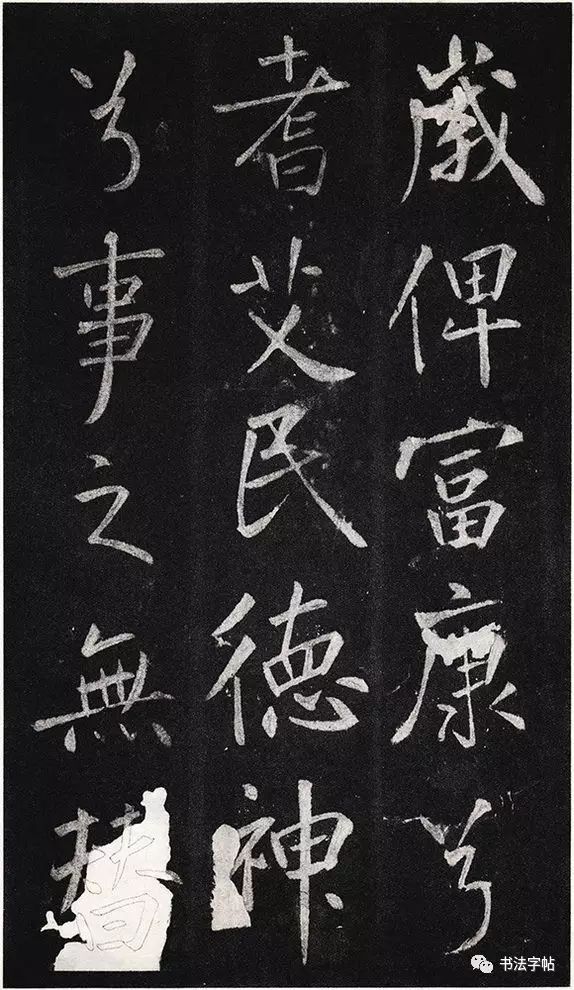 歲俾富康兮
耆艾民德神
兮事之無替
书法字帖